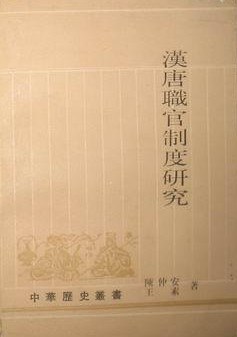 漢唐職官制度研究
陳仲安
王素
著
中華歷史叢書